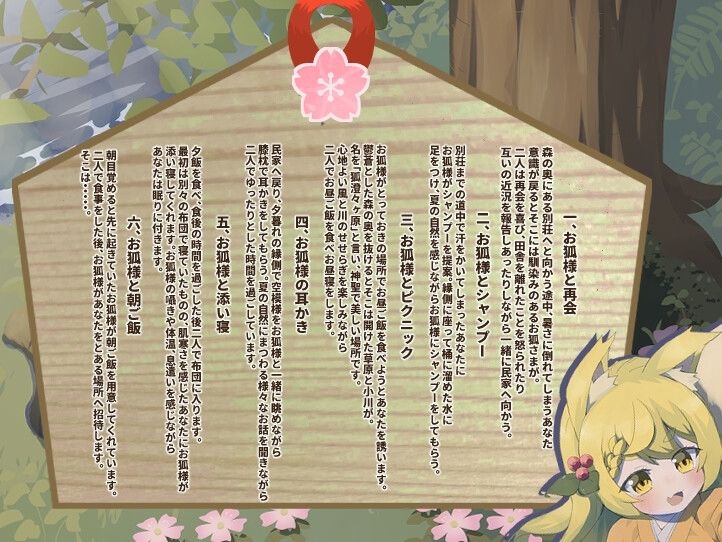 一、お狐様と再会
森の奥にある別荘へと向かう途中、暑さに倒れてしまうあなた
意識が戻るとそこには馴染みのあるお狐さまが。
二人は再会を喜び、田舎を離れたことを怒られたり
互いの近況を報告しあったりしながら一緒に民家へ向かう。
二、お狐様とシャンプー
別荘までの道中で汗をかいてしまったあなたに
お狐様がシャンプーを提案。縁側に座って桶に溜めた水に
足をつけ、夏の自然を感じながらお狐様にシャンプーをしてもらう。
三、お狐様とピクニック
お狐様がとっておきの場所でお昼ご飯を食べようとあなたを誘います。
鬱蒼とした森の奥を抜けるとそこは開けた草原と小川が。
名を「狐澄々ヶ原」と言い、神聖で美しい場所です。
心地よい風と川のせせらぎを楽しみながら
二人でお昼ご飯を食べお昼寝をします。
四、お狐様の耳かき
民家へ戻り、夕暮れの縁側で空模様をお狐様と一緒に眺めながら
膝枕で耳かきをしてもらう。夏の自然にまつわる様々なお話を聞きながら
二人でゆったりとした時間を過ごしています。
五、お狐様と添い寝
夕飯を食べ、食後の時間を過ごした後二人で布団に入ります。
最初は別々の布団で寝ていたものの、肌寒さを感じたあなたにお狐様が
添い寝してくれます。お狐様の囁きや体温、息遣いを感じながら
あなたは眠りに付きます。
六、お狐様と朝ご飯
朝目覚めると先に起きていたお狐様が朝ご飯を用意してくれています。
二人で食事をした後、お狐様があなたをとある場所へ招待します。
そこは・・・・・。